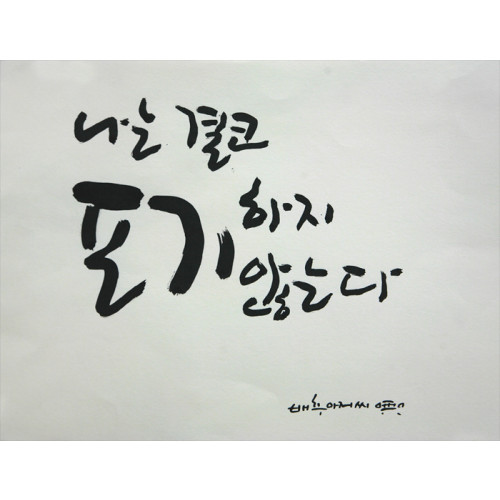 나는 결코
포기하지
않는다
배추아저씨